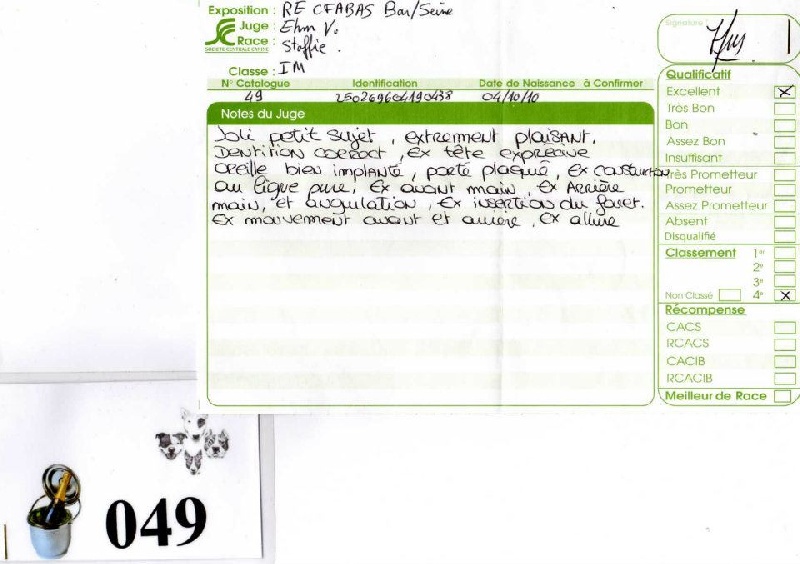 Exposition : RE CFABAS Bar/Seine
Juge : Ehm V.
Race : Staffie.
SOCIÉTÉ CENTRALE CANINE
Classe : IM
N° Catalogue Identification Date de Naissance à Confirmer
49 250269604190438 04/10/10
Notes du Juge
Joli petit sujet, extrement plaisant.
Dentition correct, Ex tête expréssive
oreille bien implanté, porté plaqué, Ex construction
au ligne pure, Ex avant main, Ex Arrière
main, et angulation, Ex insertion du fouet.
Ex mouvement avant et arrière, Ex allure
Signature :
Qualificatif
Excellent X
Très Bon
Bon
Assez Bon
Insuffisant
Très Prometteur
Prometteur
Assez Prometteur
Absent
Disqualifié
Classement 1er
2e
3e
Non Classé 4e X
Récompense
CACS
RCACS
CACIB
RCACIB
Meilleur de Race
049